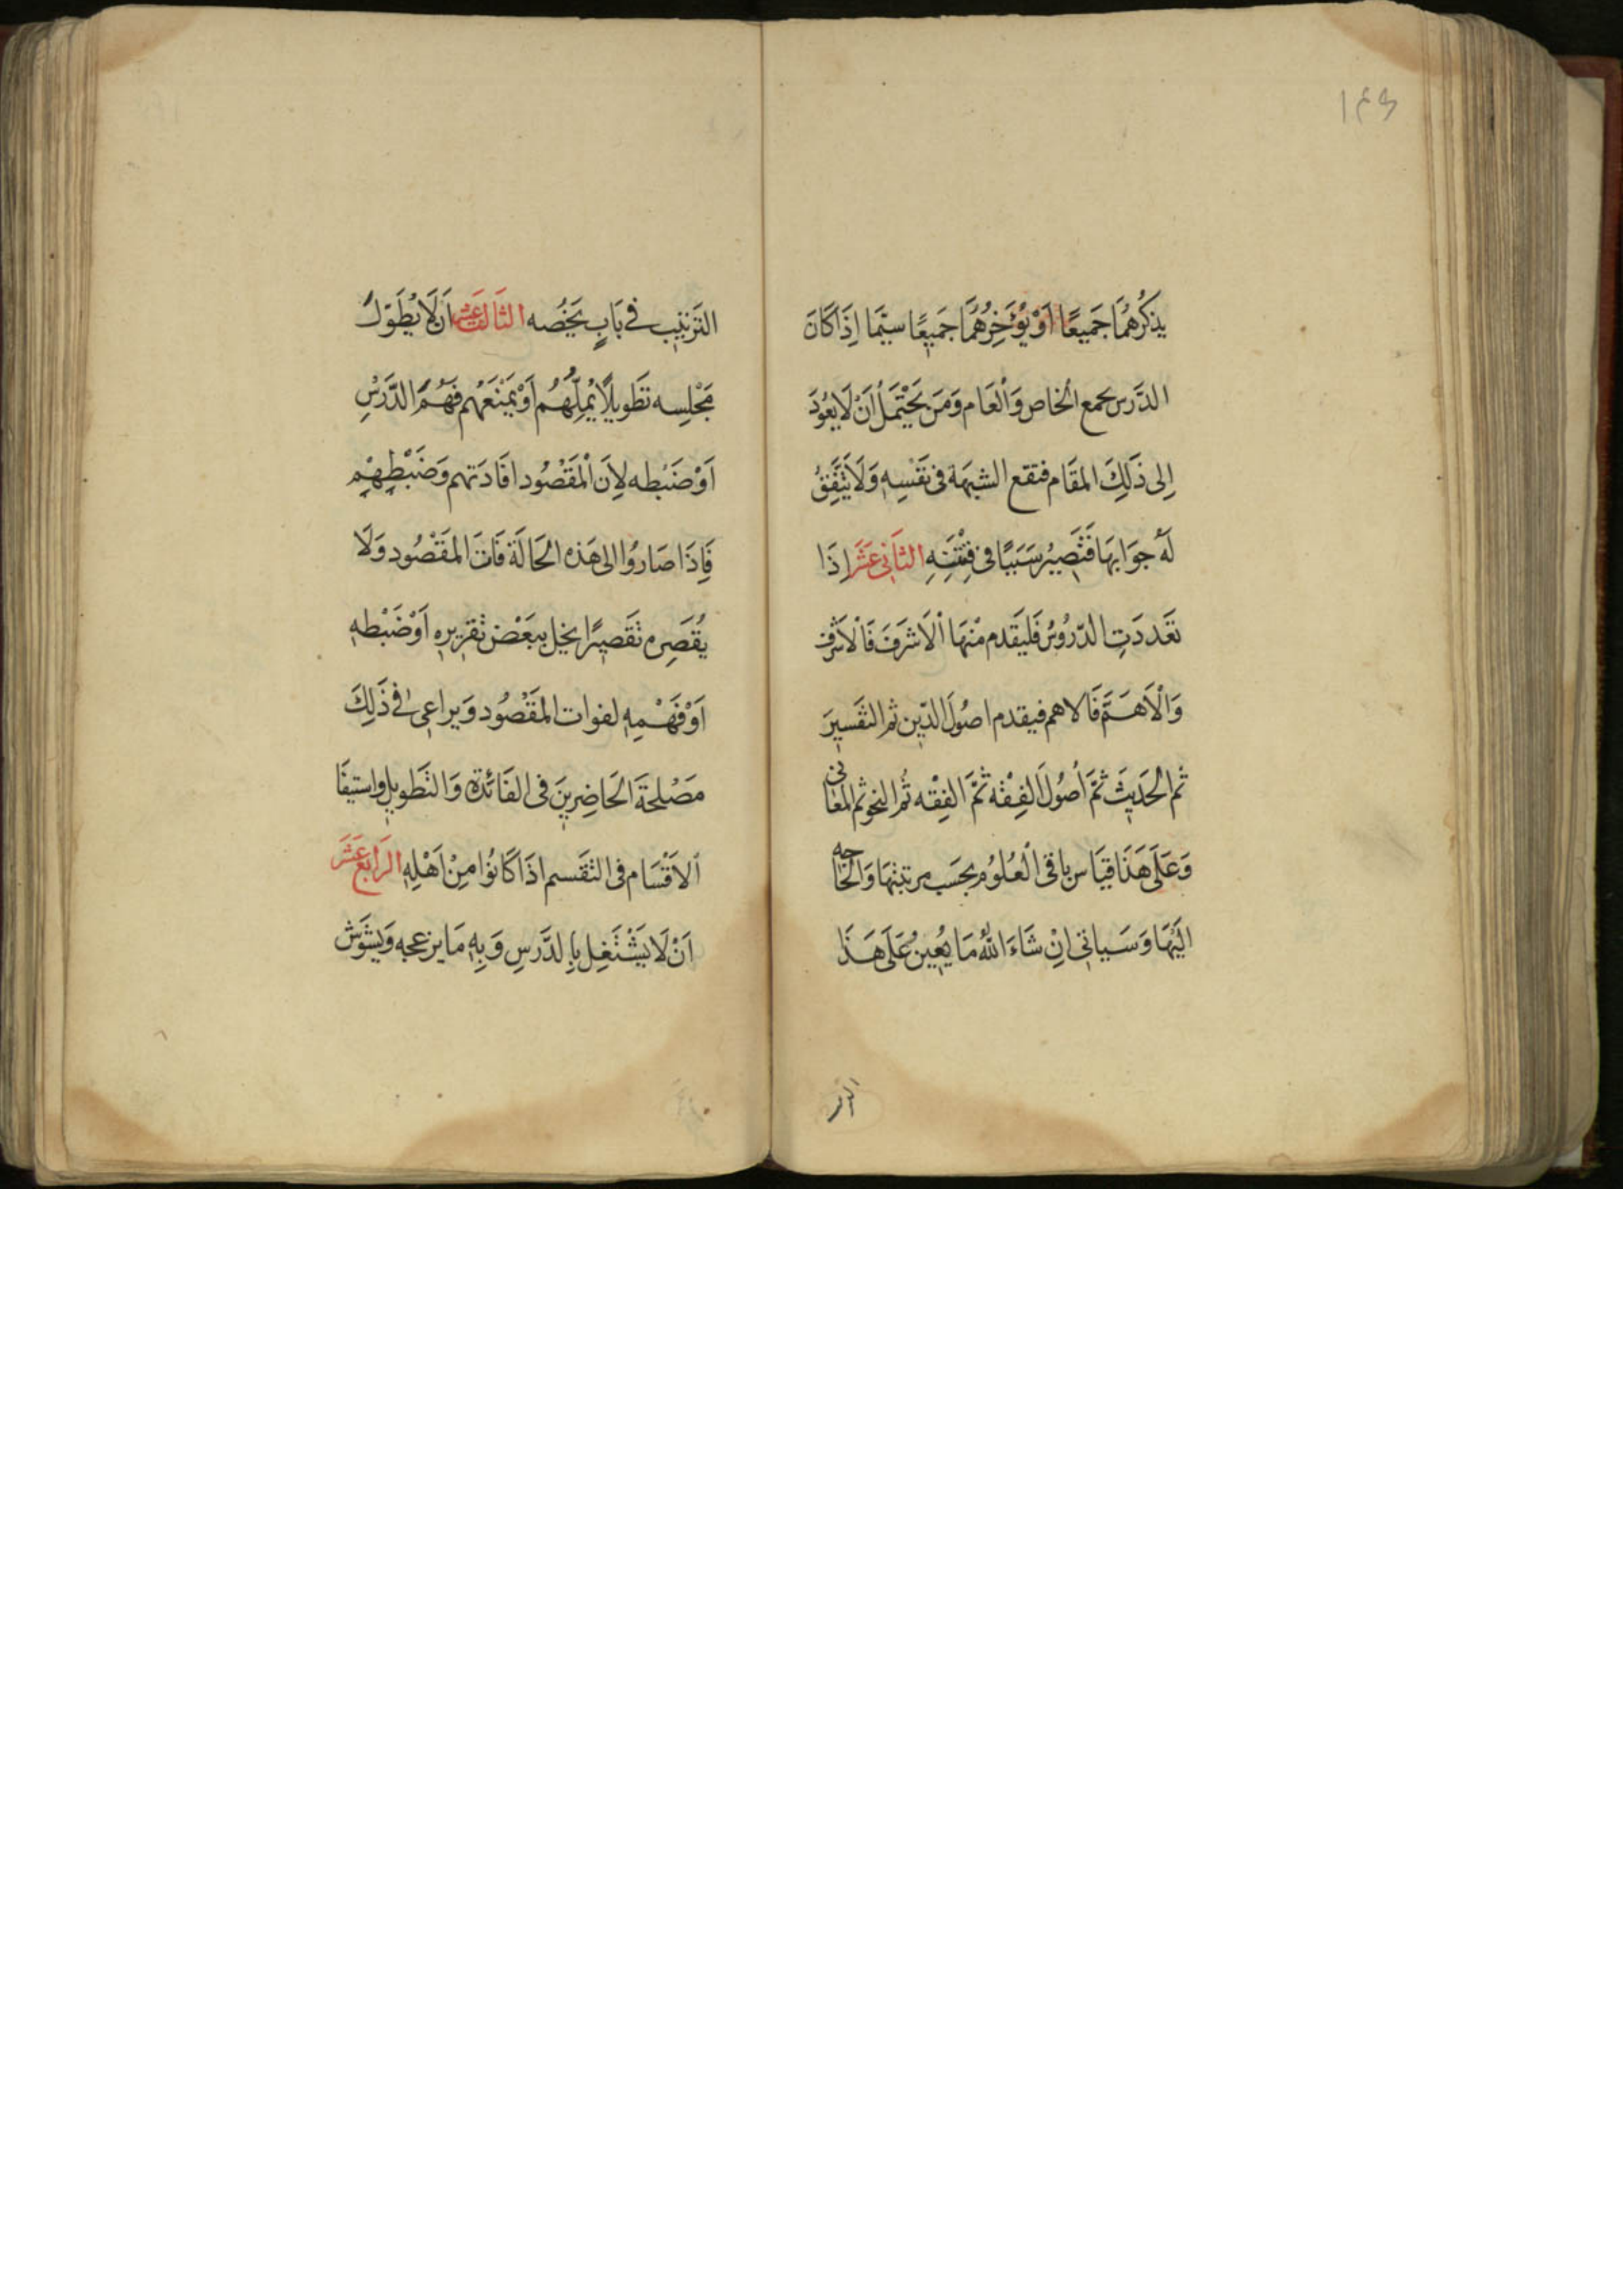 ١٤٦
يذكُرُهُمَا جَمِيعًا اَوْ يُؤَخِرُهُمَا جَمِيعًا سيَّمَا اِذَا كَانَ
الدَّرس يجمع الْخَاص وَالْعَام وَمَن يَحْتَمَلُ اَنْ لَا يَعُودَ
اِلى ذَلِكَ المقَام فتقع الشبهَة فى نَفْسِهِ وَلَا يَتَّفِقُ
لَهُ جوَابهَا فَتَصِيرُ سَبَبًا فى فِتْنَتِهِ الثَانِى عَشَرَ اِذَا
تَعَددَتِ الدّرُوسُ فَليَقَدم مْنهَا اْلاَشرَفَ فَاْلاَشرف
وَاْلاَهَمَّ فَالاهم فيقدم اصُولَ الدّين ثم التفَسِيرَ
ثم الْحَدِيثَ ثمَّ اُصُولَ الفِقْه ثمَّ الفِقْه ثُم النحو ثم المعَانى
وَعَلَى هَذَا قِيَاس باقى الْعُلُوُم بحَسَب مرتبتهَا وَالْحَاجه
اليْهَا وَسَياتى اِنْ شَاءَ اللّٰهُ مَا يُعِينُ عَلَى هَذَا
التر
التَرتِيب فى بَابٍ يَخُصُه الثَالث عَشر اَن لَا يُطَوّل
مَجْلِسِه تَطوِيلاً يُمِلُّهُم اَوْ يَمْنَعَهُم فَهْمَ الدَّرْسِ
اَوْ ضَبْطه لِاَنَ الْمَقْصُود افَادَتهم وَضَبْطِهْمِ
فَاِذَا صَارُوا الى هَذه الحَالَة فَاتَ المَقْصُود وَلَا
يُقَصِره تَقَصِيرًا يخل ببَعْض تَقْرِيرِهِ اَوْ ضَبْطهِ
اَوْ فَهْمِهِ لفوات المَقْصُود وَيراعى فى ذَلِكَ
مَصْلحةَ الحَاضِرِينَ فى الفَائَدَة وَالتَطوِيلِ واستيفَا
اْلاَقْسَام فى التقَسيم اذَا كَانُوا مِنْ اَهْلِهِ الرَابعَ عَشَرَ
اَنْ لَا يَشْتَغِل بِالدَّرَسِ وَبِهِ مَا يزعجه وَيشَوَش